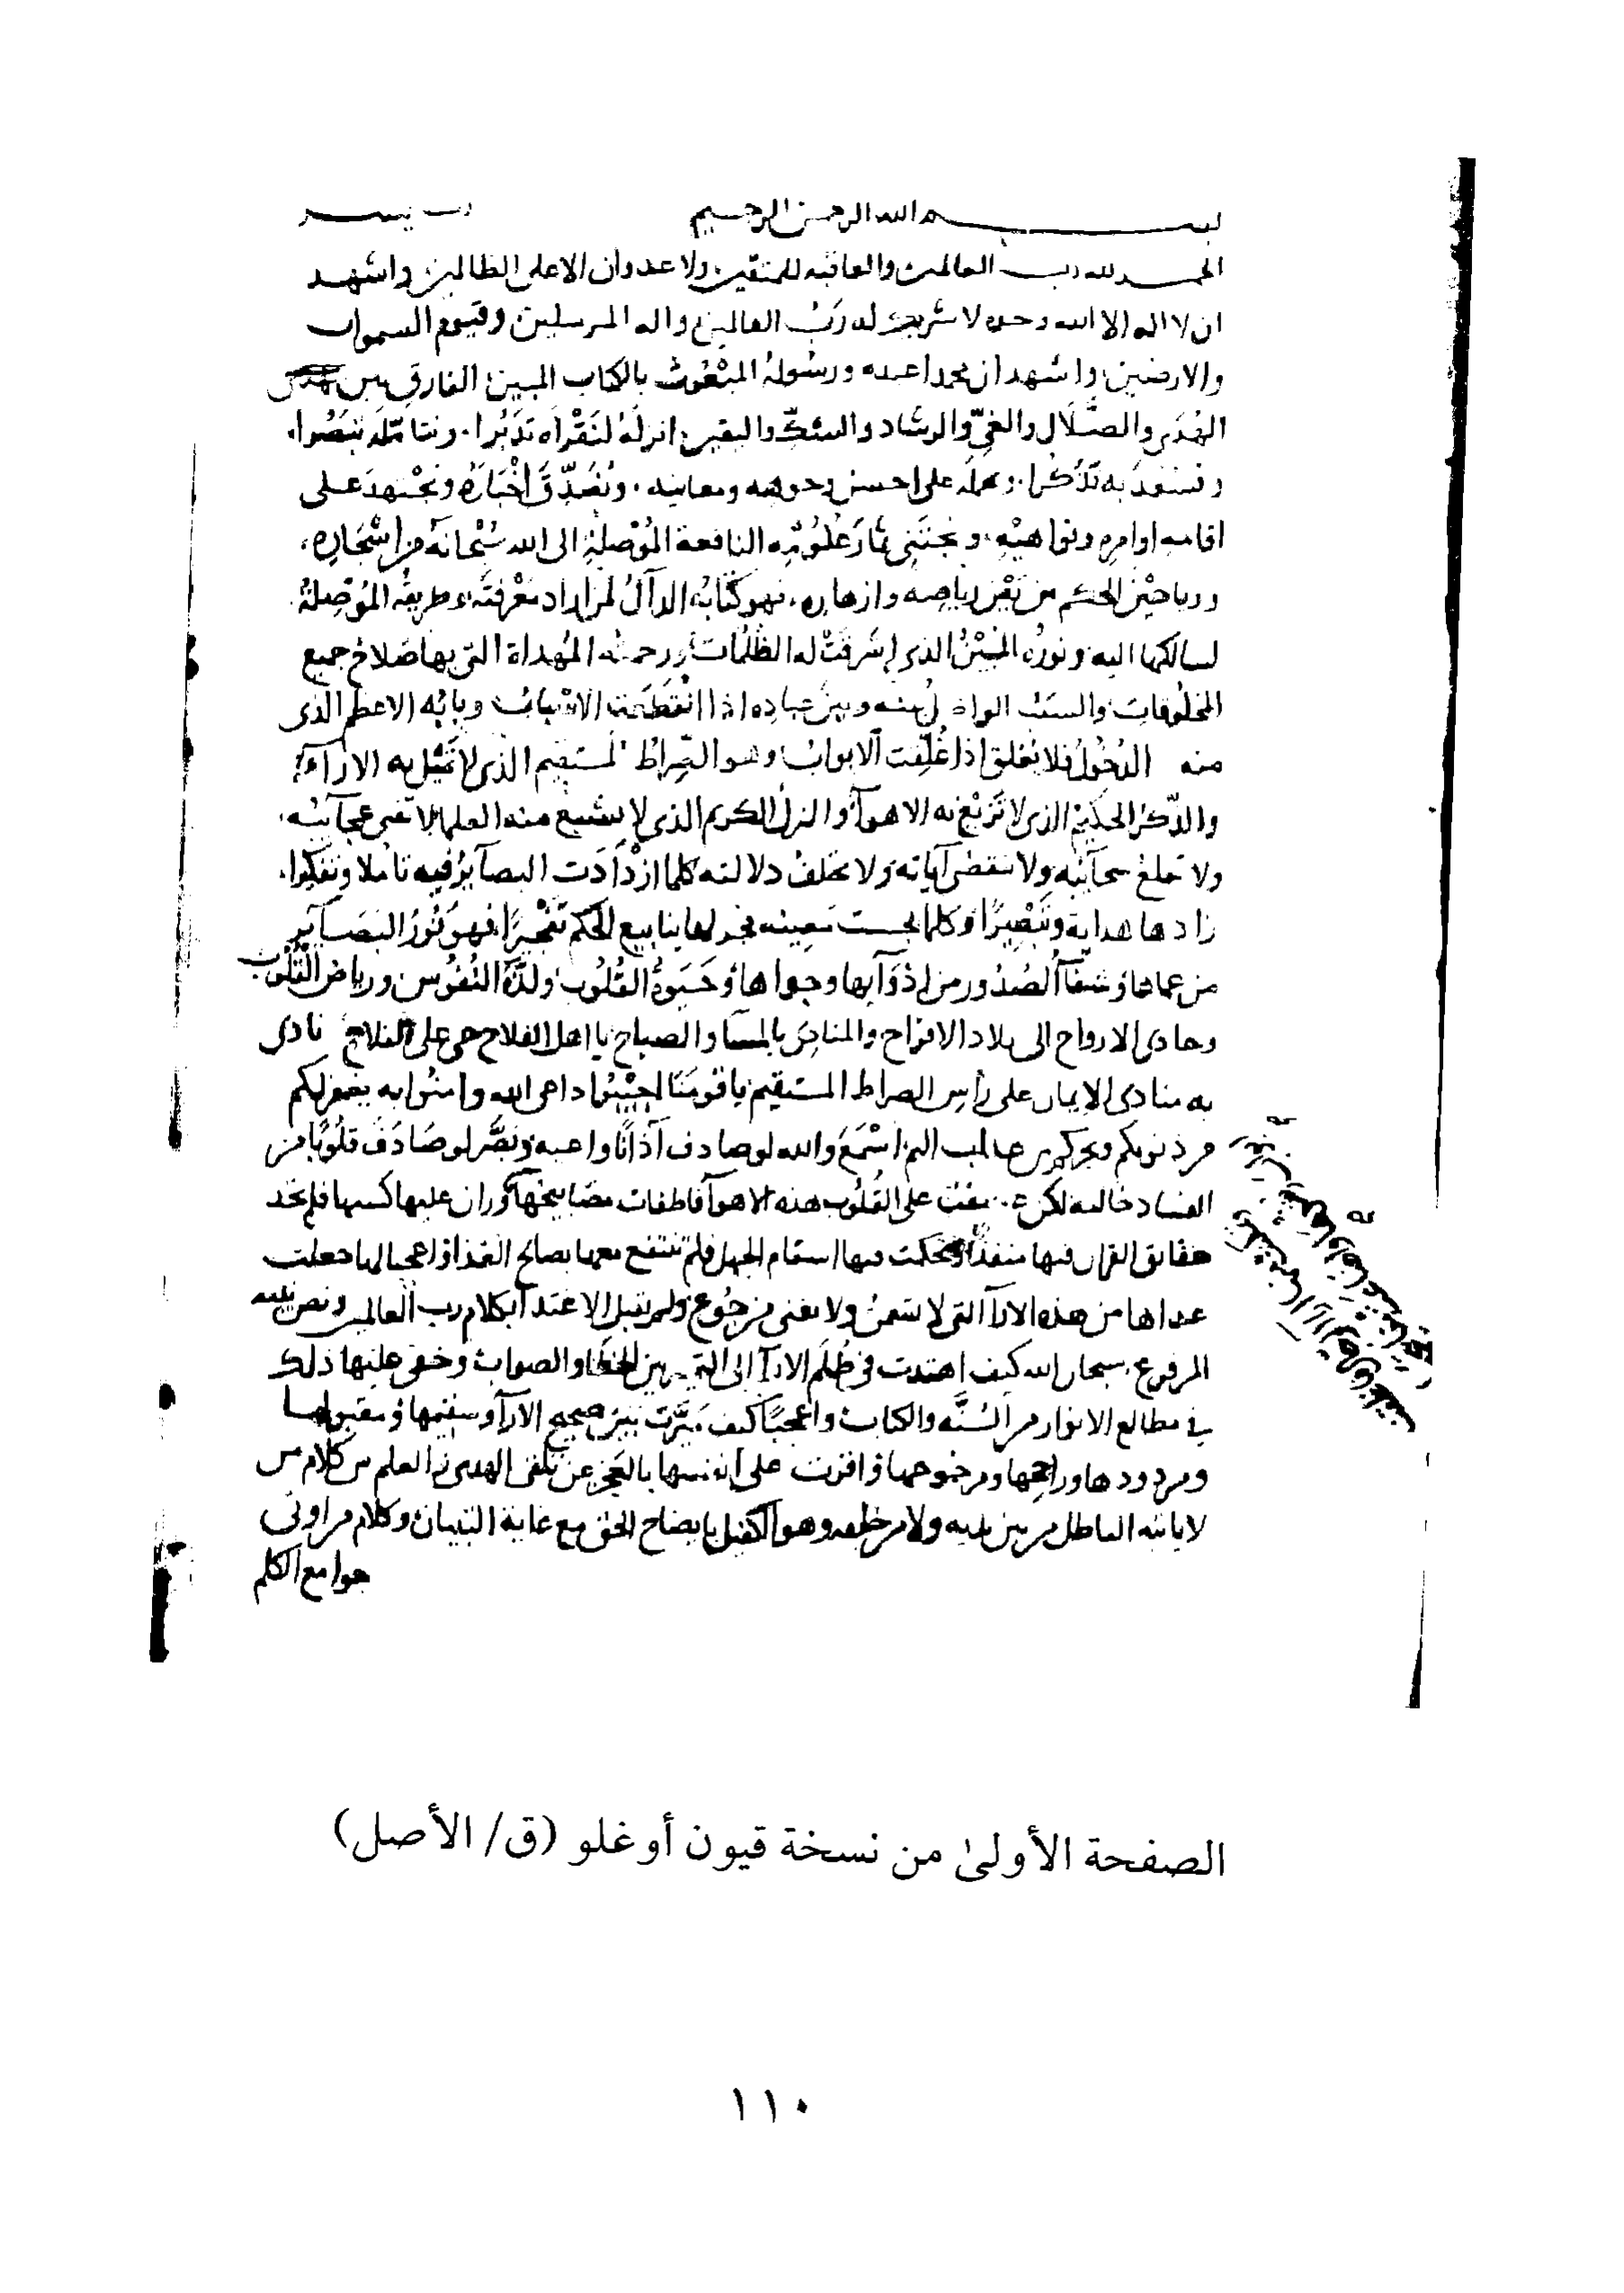 بسم الله الرحمن الرحيم رب يسر
الحمد لله رب العالمين والعاقبه للمتقين ولا عدوان الا على الظالمين واشهد
ان لا اله الا الله وحده لا شريك له رَبُّ العالمين واله المرسلين وقيوم السموات
والارضين واشهد ان محمدا عبده ورسُولهُ المبْعُوث بالكتاب المبين الفارق بين
الهُدَى والضَّلَال والغىّ والرشاد والشكّ واليقين انزلَهُ لنَقْرأه تدَبُّرا ونتامّله تبصُّرا
ونسْعدَ به تذكُّرا ونحمله على احسن وجوهه ومعانيه ونُصَدِّقَ اخْبَارَهُ ونجْتهدَ على
اقامه اوامره ونواهيْه ونجتَنِى ثمارَ عُلُومِه النافعة المُوْصلَةِ الى الله سُبْحانَهُ من اشْجَارِه
ورياحيْن الحكم من بَيْن رياضه وازهاره فهو كتابُه الدآلُ لمن اراد مَعْرفتَه وطريقُه المُوْصِلةُ
لسالكها اليه ونورُه المبيْنُ الذى اشرقتْ له الظلُمات ورحمته المُهداة التى بها صَلاحُ جميع
المخلُوقات والسبَبُ الواصلُ بينه وبين عباده اذا انْقَطَعَت الاسْبابُ وبابُه الاعظم الذى
منه الدُخُولُ فلا يُغلق اذا غُلِّقت الابوابُ وهو الصِّراطُ المستقيم الذى لا تميْل به الارآءُ
والذّكرُ الحكيْمُ الذى لا تزيْغ به الاهوآءُ والنزلُ الكريم الذى لا يشبع منه العلما لا تفنى عجآئبُه
ولا تقلع سحآئبُه ولا تنقضى آياته ولا تختلفُ دلالته كلما ازْدَادَت البصآئرُ فيه تاملا وتفكيرا
زادها هدايةً وتبْصِيرًا وكلما بجست مَعِينه فجر لها ينابيع الحكم تَفْجيرًا فهو نُورُ البصَآئر
من عماها وشفآ الصُدُور من ادْوَآئها وجواها وحَيَوةُ القُلُوب ولذَّةُ النُفُوس ورياض القلُوب
وحادى الارواح الى بلاد الافراح والمنادِى بالمسآ والصباح يا اهل الفلاح حى على الفلاح نادى
به منادى الايمان على رأسِ الصراط المستقيم يا قومَنَا اجيْبُوا داعى الله وامنُوا به يغفر لكم
من ذنوبكم ويجركم من عذاب اليم اسْمَعَ والله لو صادف آذانًا واعيه وبَصَّر لو صَادَفَ قلُوبًا من
الفساد خاليه لكن عصفت على القُلُوب هذه الاهوآ فاطفات مصَابيْحَها وران عليها كسبها فلم تجد
حقايق القران فيها منفذًا وتحكمت فيها اسقام الجهل فلم تنتفع معها بصالح الغذا واعجبا لها جعلت
غذاها من هذه الارآ التى لا تسمنُ ولا تغنى من جُوع ولم تقبل الاغتذآ بكلام رب العالمين ونص نبيه
المرفوع سبحان الله كيف اهتدت فى ظُلَم الارآ الى التمييز بين الخطا والصواب وخفى عليها ذلك
فى مطالع الانوار من السُنَّه والكتاب واعجبًا كيف مَيَّزت بَيْن صحيح الارآ وسقيمها ومقبولها
ومردودها وراجحها ومرجوحها واقرت على انفسها بالعَجْز عن تلقى الهدى والعلم من كلام من
لا ياتيه الباطل من بين يديه ولا من خلفه وهو الكفيل بايضاح الحق مع غاية التبيان وكلام من اوتى
جوامع الكلم
الصفحة الأولىٰ من نسخة قيون أوغلو (ق/ الأصل)
١١٠